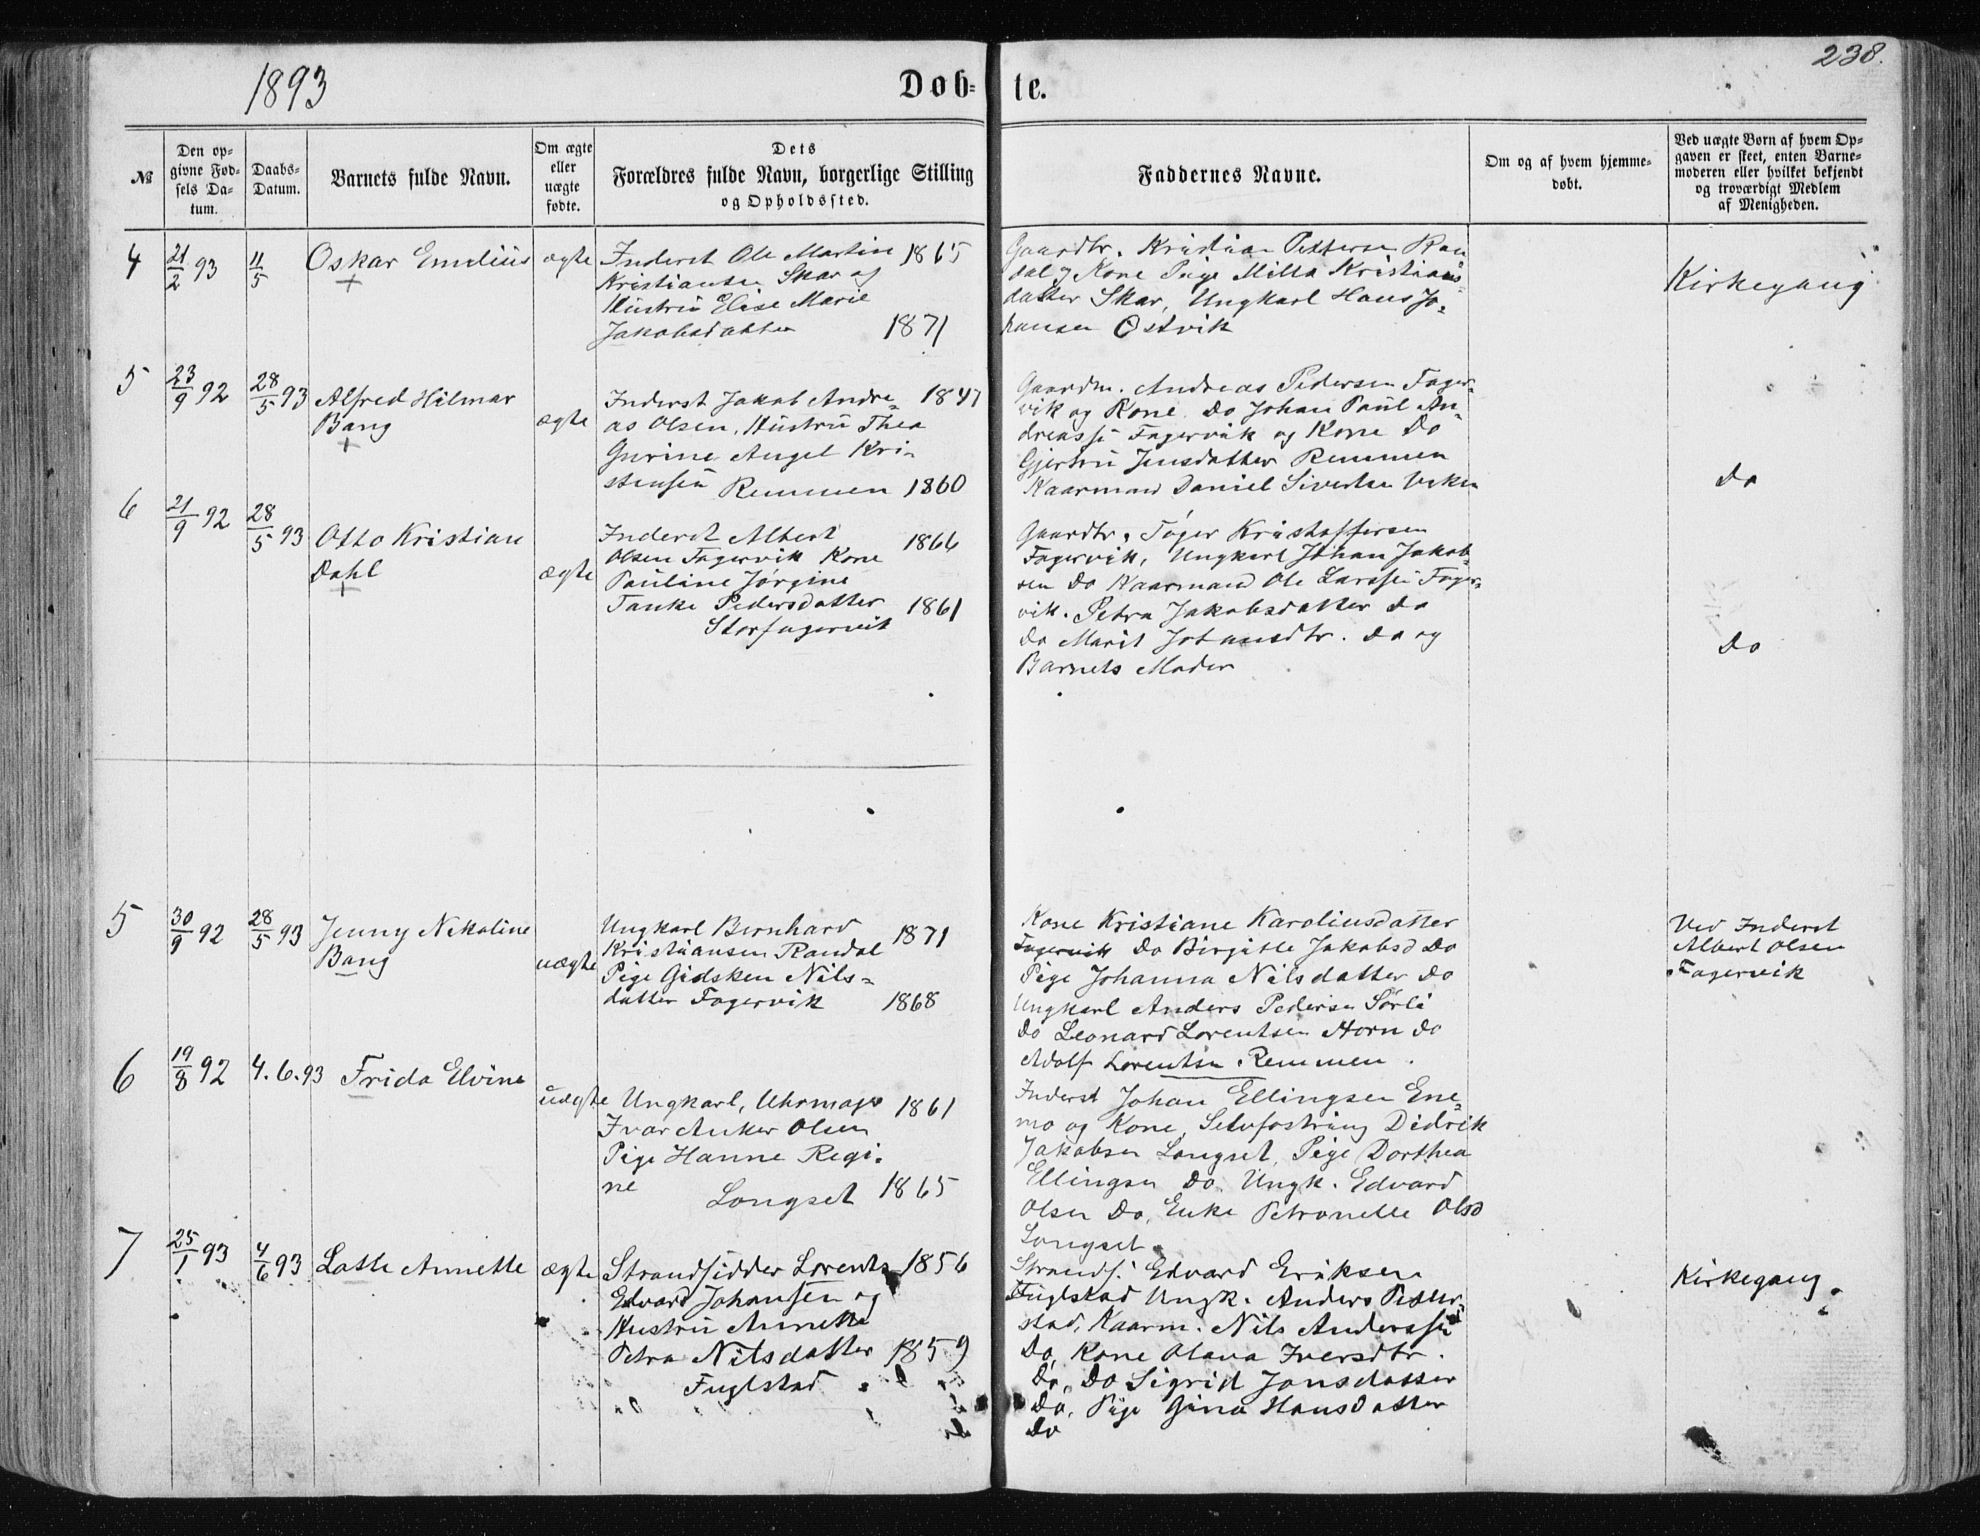 1893
Døb=
te.
238.
№
Den op=
givne Fød=
sels Da=
tum.
Daabs=
Datum.
Barnets fulde Navn.
Om ægte
eller
uægte
fødte.
Dets
Forældres fulde Navn, borgerlige Stilling
og Opholdssted.
Faddernes Navne.
Om og af hvem hjemme=
døbt.
Ved uægte Børn af hvem Op=
gaven er skeet, enten Barne=
moderen eller hvilket bekjendt
og troværdigt Medlem
af Menigheden.
4
21/2 93
11/5
Oskar Emilius
ægte
Inderst Ole Martin 1865
Kristiansen Skar og
Hustru Elise Marie
Jakobsdatter 1871
Gaardbr. Kristian Pettersen Ran
dal og Kone Pige Milla Kristians
datter Skar, Ungkarl Hans Jo=
hansen Ostvik
Kirkegang
5
23/9 92
28/5 93
Alfred Hilmar
Bang
ægte
Inderst Jakob Andre= 1847
as Olsen, Hustru Thea
Gurine Angel Kri=
stensen Remmen 1860
Gaardm. Andreas Pedersen Fager=
vik og Kone Do Johan Paul An=
dreassen Fagervik og Kone Do
Gjertru Jensdatter Remmen
Kaarmand Daniel Sivertsen
Do
6
21/9 92
28/5 93
Otto Kristian
Dahl
ægte
Inderst Albert 1866
Olsen Fagervik Kone
Pauline Jørgine
Tanke Pedersdatter 1861
Storfagervik
Gaardbr. Tøger Kristoffersen
Fagervik, Ungkarl Johan Jakob
sen Do Kaarmand Ole Larssen Fager=
vik. Petra Jakobsdatter Do
Do Marit Johansdtr. Do og
Barnets Moder
Do
5
30/9 92
28/5 93
Jenny Nikoline
Bang
uægte
Ungkarl Bernhard 1871
Kristiansen Randal
Pige Gidsken Nils=
datter Fagervik 1868
Kone Kristiane Karoliusdatter
Fagervik Do Birgitte Jakobsd Do
Pige Johanna Nilsdatter Do
Ungkarl Anders Pedersen Sørli
Do Leonard Lorentsen Horn Do
Adolf Lorentsen Remmen.
Ved Inderst
Albert Olsen
Fagervik
6
19/8 92
4.6.93
Frida Elvine
uægte
Ungkarl, Uhrmager 1861
Ivar Anker Olsen
Pige Hanne Regi=
ne Longset 1865
Inderst Johan Ellingsen Ene=
mo og Kone, Selvfostring Didrik
Jakobsen Longset, Pige Dorthea
Ellingsen Do. Ungk. Edvard
Olsen Do, Enke Petronelle Olsd
Longset
7
25/1 93
4/6 93
Lotte Annette
ægte
Strandsidder Lorents 1856
Edvard Johansen og
Hustru Annette
Petra Nilsdatter 1859
Fuglstad
Strands. Edvard Eriksen
Fuglstad Ungk. Anders
stad, Kaarm. Nils Anderssen
Do, Kone Olava Iversdtr.
Do, Do Sigrid Jonsdatter
Do, Pige Gina Hansdatter
Do
Kirkegang.